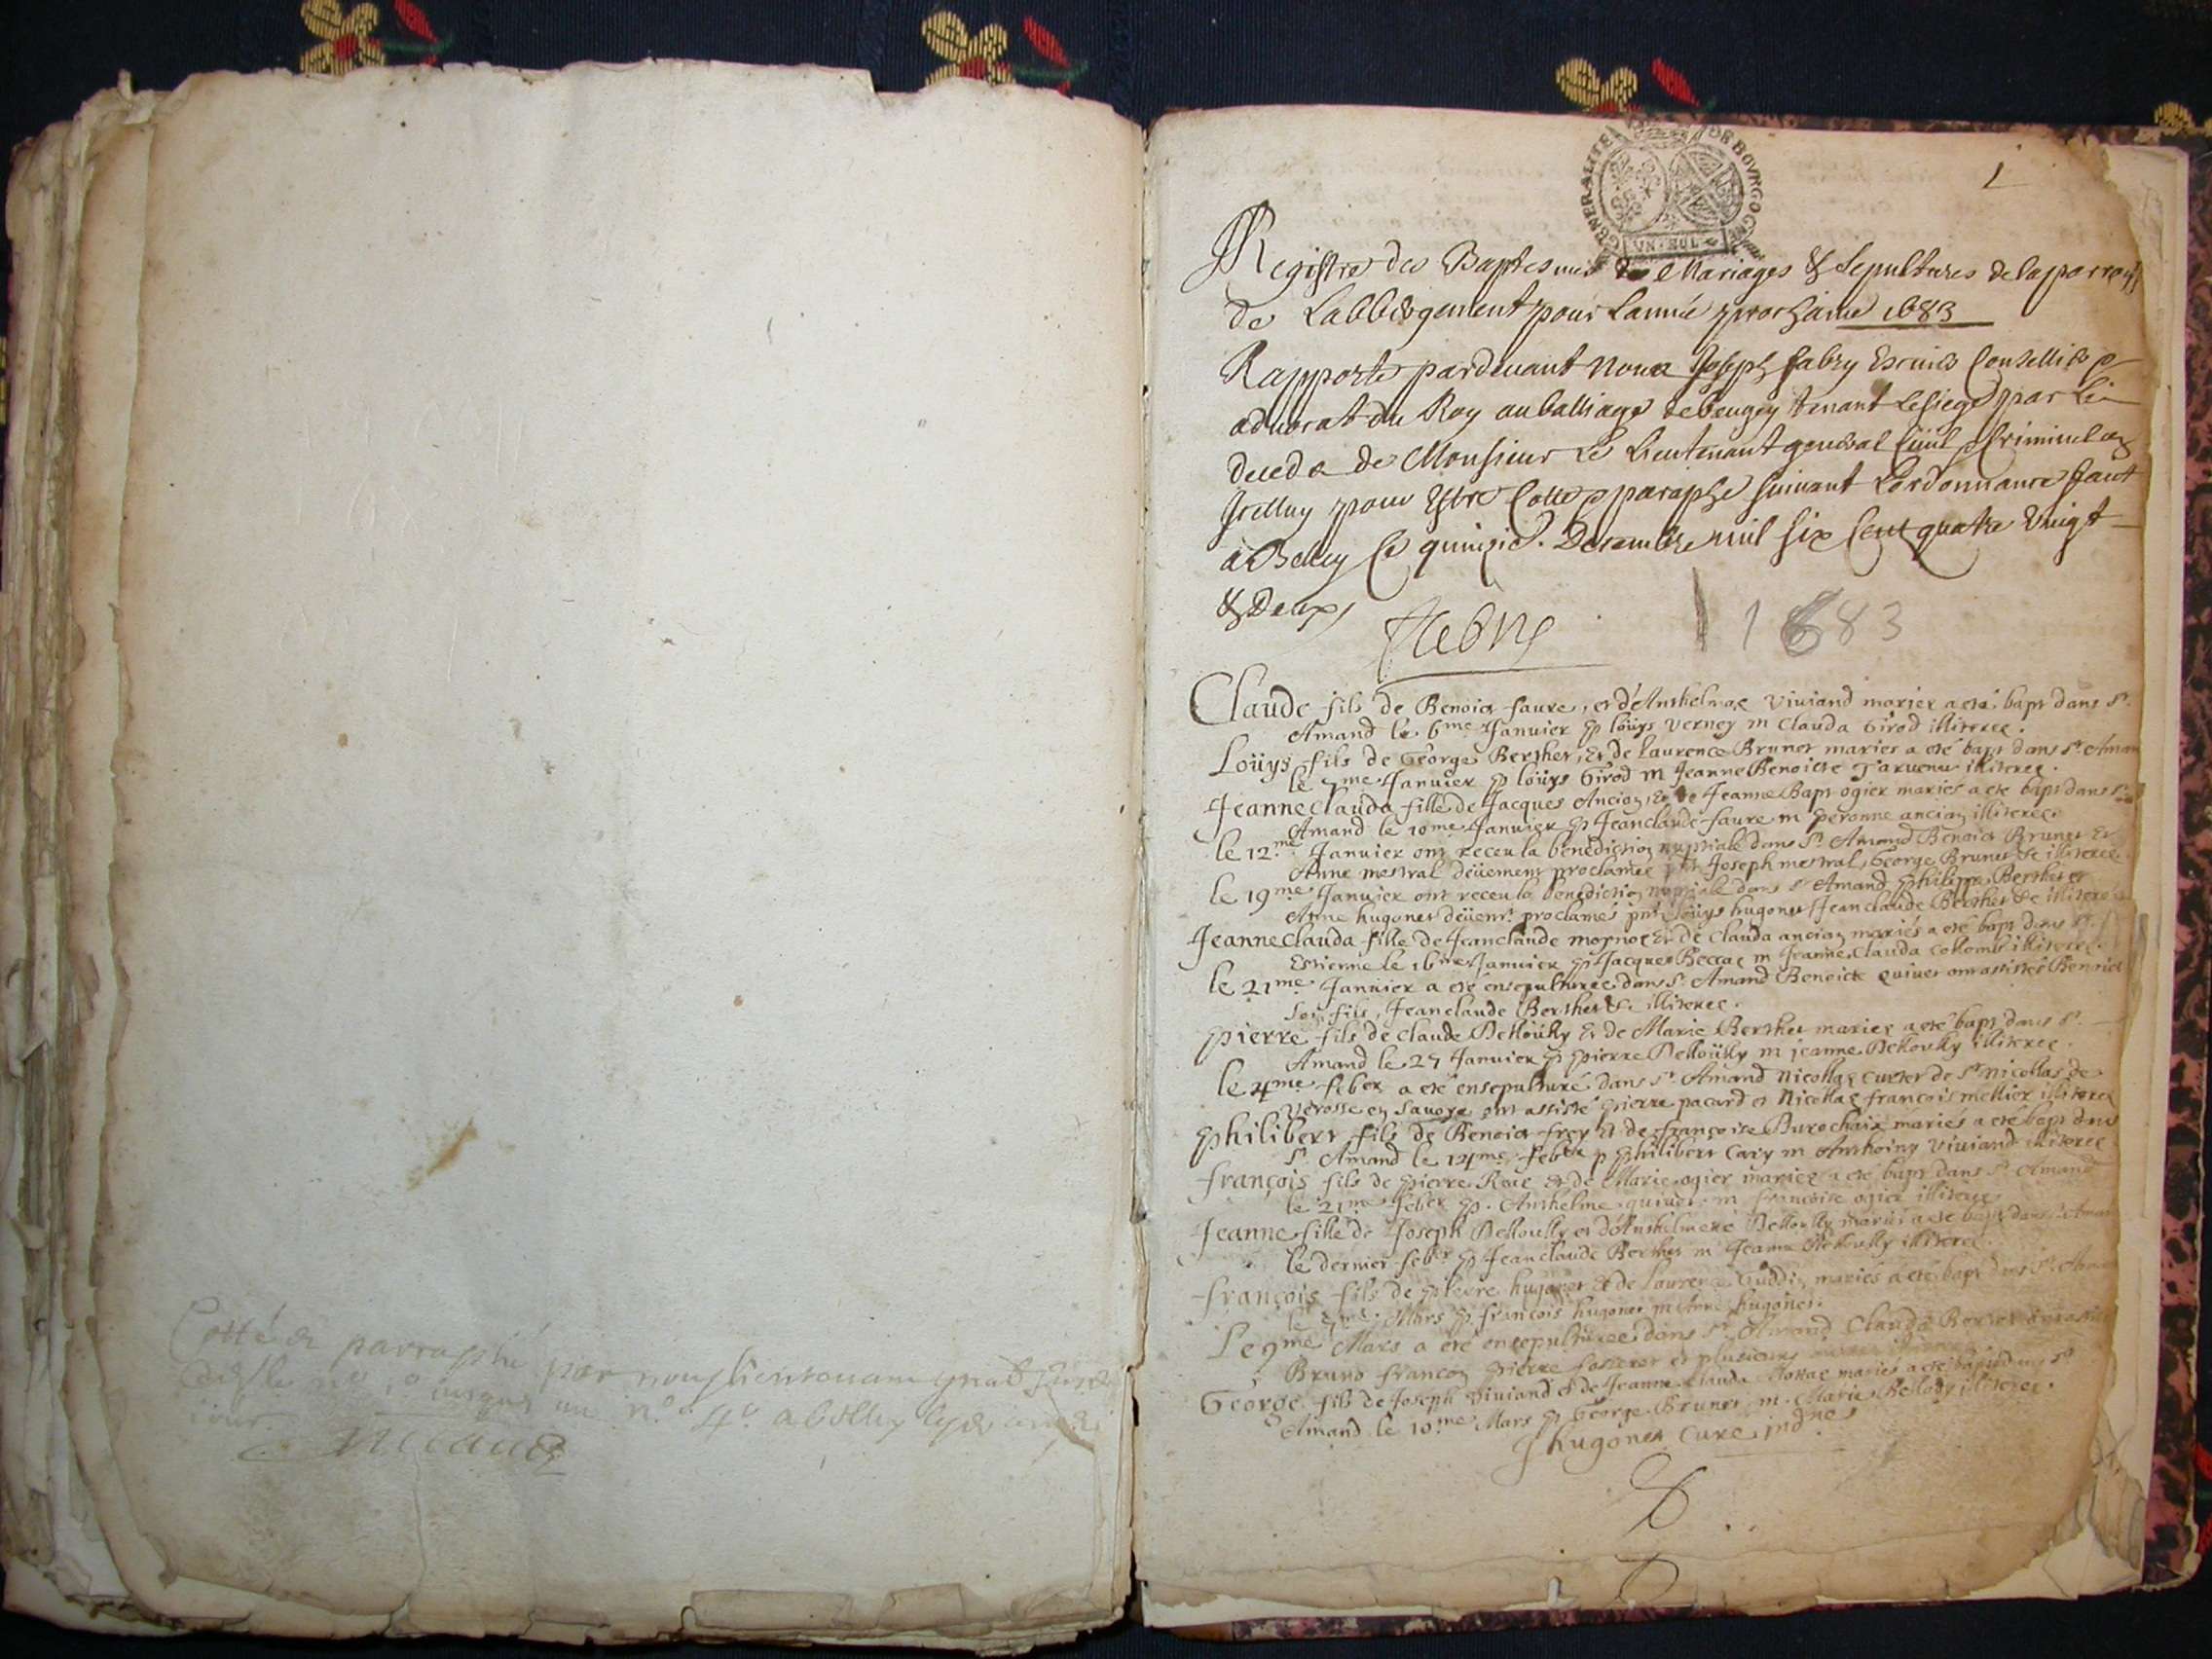 Cotté & parraphé par nous lieutenant
n.º 4.º a belley
GENERALITE DE BOVRGOGNE
VN·SOL
1
Registre des Baptesmes des Mariages & Sepultures de la parroi
de Labbergement pour Lannée prochaine 1683
Rapporte pardevant nous Joseph fabry Escuier Conseillier &
advocat du Roy au balliage de beugey tenant le siege par le
deceds de Monsieur Le Lieutenant general Civil & Criminel en
Jcelluy pour Estre Cotte & paraphe suivant Lordonnance faict
à Belley Ce quinzie. Decembre mil six Cent quatre vingt
& Deux
1683
Claude fils de Benoict faure, et d'Anthelmae Viviand mariez a eté bapt dans St.
Amand le 6me Janvier p loüys Verney m Clauda Girod illiterez.
Loüys fils de George Berthet, Et de Laurence Brunet mariés a eté bapt dans St. Aman
le 7me Janvier p loüys Girod m Jeanne Benoicte illiterez.
Jeanne Clauda fille de Jacques Ancian, Et de Jeanne Bapt ogier mariés a eté bapt dans St.
Amand le 10me Janvier p Jeanclaude faure m peronne ancian illiterez.
le 12me Janvier ont receu la benediction nuptiale dans St. Amand Benoict Brunet Et
Anne mestral deüement proclamez pnt Joseph mestral, George Brunet &c illiterez.
le 19me Janvier ont receu la benediction nuptiale dans St Amand philippe Berthet et
Anne hugonet deüemt. proclamés pnt loüys hugonet Jeanclaude Berthet &c illiterés
Jeanne Clauda fille de Jeanclaude moynoc Et de Clauda ancian mariés a eté bapt dans St.
Estienne le 16me Janvier p Jacques Beccac m Jeanne Clauda Collomb illiterez.
le 21me Janvier a eté ensepulturée dans St. Amand Benoicte quivet ont assistés Benoict
son fils, Jeanclaude Berthet &c. illiterez.
Pierre fils de Claude Dellouky Et de Marie Berthet mariez a eté bapt dans St.
Amand le 27 Janvier p pierre Delloully m jeanne Delloully illiterez.
le 4me feber a eté ensepulturé dans St. Amand Nicollas Curtet de St Nicollas de
Verosse en Savoye ont assisté pierre pacard et Nicollas françois mellier illiterez
Philibert fils de Benoict frey Et de françoise Durochaix mariés a eté bapt dans
St. Amand le 14me feber p philibert Cary m Anthoiny Viviand illiterez
françois fils de pierre Roie et de Marie ogier mariez a eté bapt dans St Amand
le 21me feber p. Anthelme quivet m françoise ogier illiterez
Jeanne fille de Joseph Delloully et d'Anthelmere Delloully mariés a eté bapt dans St Aman
le dernier febr p Jeanclaude Berthet m Jeanne Delloully illiterez
françois fils de pierre hugonet Et de Laurence mariés a eté bapt dans St. Aman
le 7me. Mars p françois hugonet m Anne hugonet.
Le 9me Mars a eté ensepulturee dans St. Amand Clauda
Bruno françon pierre et plusieurs
George fils de Joseph Viviand & de Jeanne Clauda mariés a eté bapt dans St
Amand le 10me Mars p George Brunet m. Marie illiterez.
J hugonet Curé indne